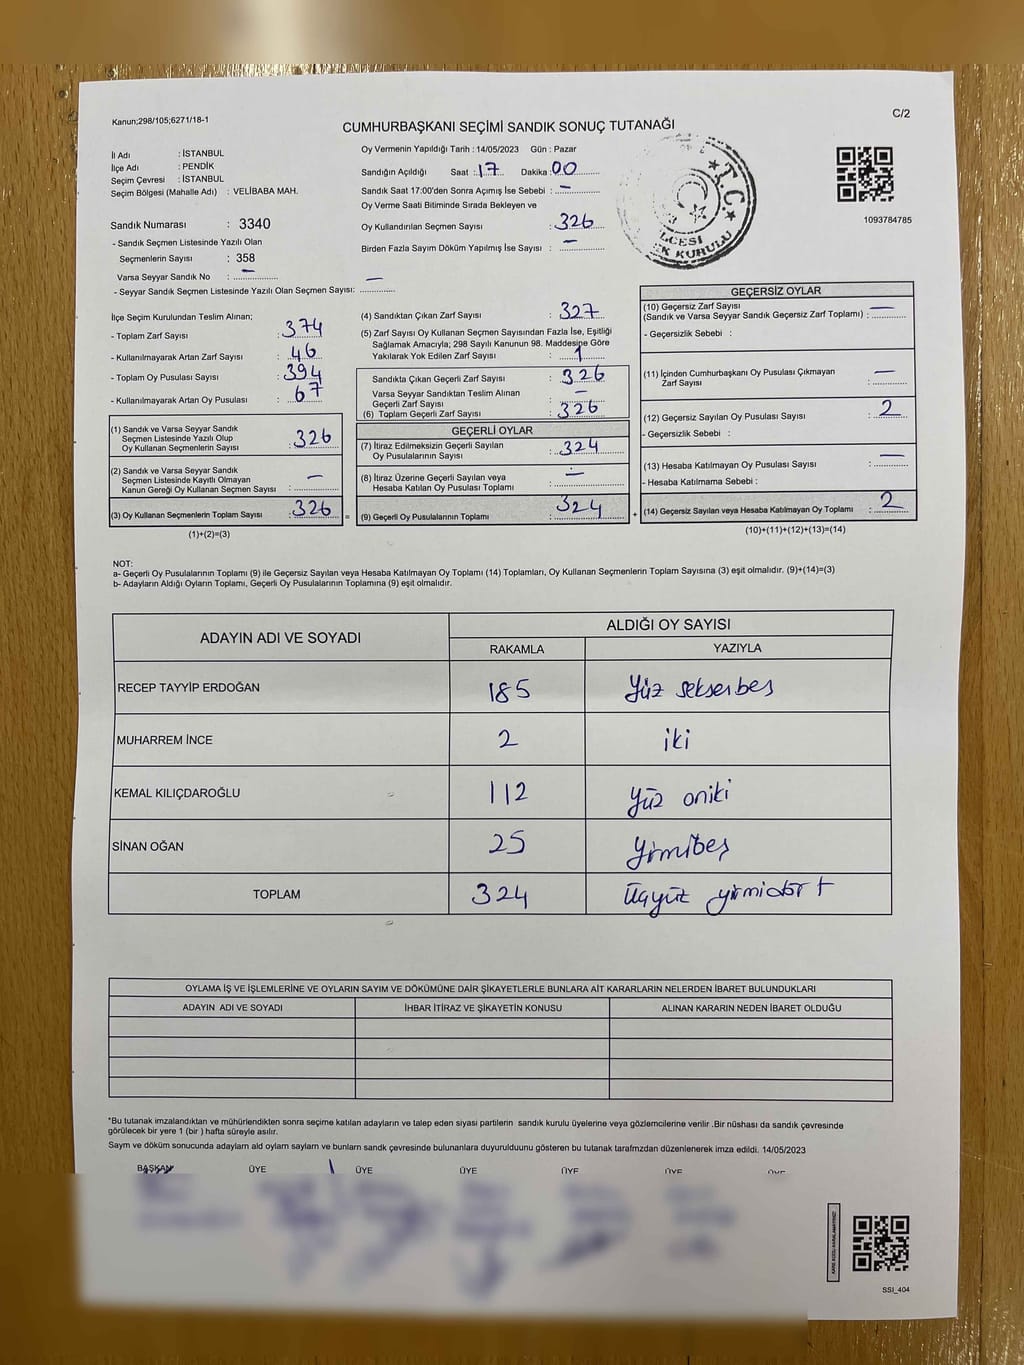 Kanun;298/105;6271/18-1
C/2
CUMHURBAŞKANI SEÇİMİ SANDIK SONUÇ TUTANAĞI
İl Adı : İSTANBUL
İlçe Adı : PENDİK
Seçim Çevresi : İSTANBUL
Seçim Bölgesi (Mahalle Adı) : VELİBABA MAH.
Sandık Numarası : 3340
- Sandık Seçmen Listesinde Yazılı Olan
Seçmenlerin Sayısı : 358
Varsa Seyyar Sandık No : —
- Seyyar Sandık Seçmen Listesinde Yazılı Olan Seçmen Sayısı: —
Oy Vermenin Yapıldığı Tarih : 14/05/2023 Gün : Pazar
Sandığın Açıldığı Saat : 17 Dakika : 00
Sandık Saat 17:00'den Sonra Açımış İse Sebebi : —
Oy Verme Saati Bitiminde Sırada Bekleyen ve
Oy Kullandırılan Seçmen Sayısı : 326
Birden Fazla Sayım Döküm Yapılmış İse Sayısı : —
T.C.
İLÇESİ
K KURULU
1093784785
İlçe Seçim Kurulundan Teslim Alınan;
- Toplam Zarf Sayısı : 374
- Kullanılmayarak Artan Zarf Sayısı : 46
- Toplam Oy Pusulası Sayısı : 394
- Kullanılmayarak Artan Oy Pusulası : 67
(1) Sandık ve Varsa Seyyar Sandık
Seçmen Listesinde Yazılı Olup
Oy Kullanan Seçmenlerin Sayısı : 326
(2) Sandık ve Varsa Seyyar Sandık
Seçmen Listesinde Kayıtlı Olmayan
Kanun Gereği Oy Kullanan Seçmen Sayısı : —
(3) Oy Kullanan Seçmenlerin Toplam Sayısı : 326
(1)+(2)=(3)
(4) Sandıktan Çıkan Zarf Sayısı : 327
(5) Zarf Sayısı Oy Kullanan Seçmen Sayısından Fazla İse, Eşitliği
Sağlamak Amacıyla; 298 Sayılı Kanunun 98. Maddesine Göre
Yakılarak Yok Edilen Zarf Sayısı : 1
Sandıkta Çıkan Geçerli Zarf Sayısı : 326
Varsa Seyyar Sandıktan Teslim Alınan
Geçerli Zarf Sayısı : —
(6) Toplam Geçerli Zarf Sayısı : 326
GEÇERLİ OYLAR
(7) İtiraz Edilmeksizin Geçerli Sayılan
Oy Pusulalarının Sayısı : 324
(8) İtiraz Üzerine Geçerli Sayılan veya
Hesaba Katılan Oy Pusulası Toplamı : —
(9) Geçerli Oy Pusulalarının Toplamı : 324
GEÇERSİZ OYLAR
(10) Geçersiz Zarf Sayısı
(Sandık ve Varsa Seyyar Sandık Geçersiz Zarf Toplamı) : —
- Geçersizlik Sebebi :
(11) İçinden Cumhurbaşkanı Oy Pusulası Çıkmayan
Zarf Sayısı : —
(12) Geçersiz Sayılan Oy Pusulası Sayısı : 2
- Geçersizlik Sebebi :
(13) Hesaba Katılmayan Oy Pusulası Sayısı : —
- Hesaba Katılmama Sebebi :
(14) Geçersiz Sayılan veya Hesaba Katılmayan Oy Toplamı : 2
(10)+(11)+(12)+(13)=(14)
NOT:
a- Geçerli Oy Pusulalarının Toplamı (9) ile Geçersiz Sayılan veya Hesaba Katılmayan Oy Toplamı (14) Toplamları, Oy Kullanan Seçmenlerin Toplam Sayısına (3) eşit olmalıdır. (9)+(14)=(3)
b- Adayların Aldığı Oyların Toplamı, Geçerli Oy Pusulalarının Toplamına (9) eşit olmalıdır.
ADAYIN ADI VE SOYADI
ALDIĞI OY SAYISI
RAKAMLA YAZIYLA
RECEP TAYYİP ERDOĞAN 185 Yüz seksenbeş
MUHARREM İNCE 2 iki
KEMAL KILIÇDAROĞLU 112 Yüz oniki
SİNAN OĞAN 25 Yirmibeş
TOPLAM 324 Üçyüz yirmidört
OYLAMA İŞ VE İŞLEMLERİNE VE OYLARIN SAYIM VE DÖKÜMÜNE DAİR ŞİKAYETLERLE BUNLARA AİT KARARLARIN NELERDEN İBARET BULUNDUKLARI
ADAYIN ADI VE SOYADI İHBAR İTİRAZ VE ŞİKAYETİN KONUSU ALINAN KARARIN NEDEN İBARET OLDUĞU
*Bu tutanak imzalandıktan ve mühürlendikten sonra seçime katılan adayların ve talep eden siyasi partilerin sandık kurulu üyelerine veya gözlemcilerine verilir .Bir nüshası da sandık çevresinde
görülecek bir yere 1 (bir ) hafta süreyle asılır.
Sayım ve döküm sonucunda adayların aldı oyların sayların ve bunların sandk çevresinde bulunanlara duyurulduunu gösteren bu tutanak tarafmzdan düzenlenerek imza edildi. 14/05/2023
BAŞKAN ÜYE ÜYE ÜYE ÜYE ÜYE ÜYE
SSI_404